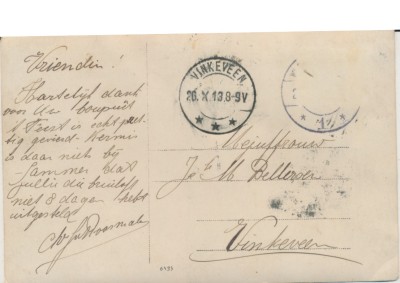 Vriendin!
Hartelijk dank
voor Uw bouquet
't Feest is echt
gevierd. Kermis
is daar niets bij
Jammer dat
jullie die bruiloft
niet 8 dagen hebt
uitgesteld
VINKEVEEN
26.X.13.8-9V
Mejuffrouw
Vinkeveen